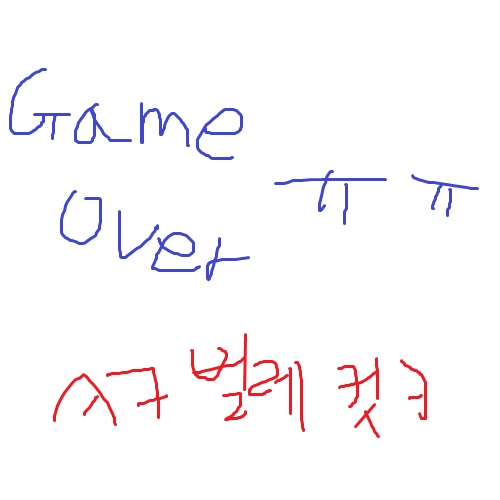 Game
Over ㅠㅠ
ㅅㅋ벌레 컷ㅋ